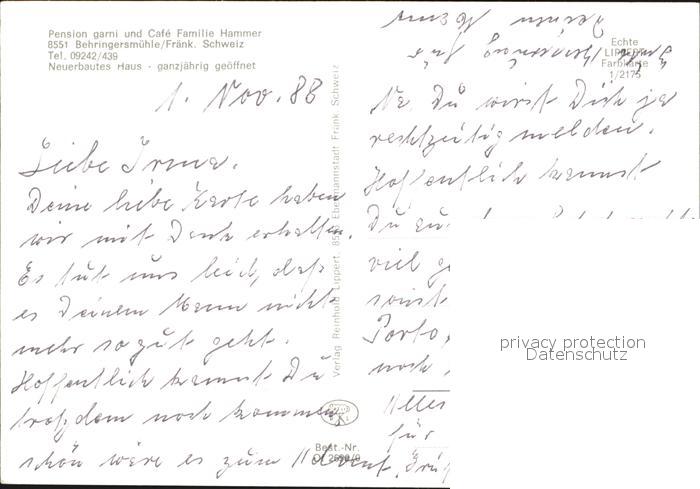 Pension garni und Café Familie Hammer
8551 Behringersmühle/Fränk. Schweiz
Tel. 09242/439
Neuerbautes Haus - ganzjährig geöffnet
1. Nov. 88
Liebe Irma.
Deine liebe Karte haben
wir mit Dank erhalten.
Es tut uns leid, daß
es Deinem Mann nicht
mehr so gut geht.
Hoffentlich kannst Du
trotzdem noch kommen,
schön wäre es zum Advent.
Verlag Reinhold Lippert, Ebermannstadt Fränk. Schweiz
Best.-Nr.
Echte
LIPPERT
Farbkarte
1/2175
Na Du wirst Dich ja
rechtzeitig melden.
Hoffentlich kannst
Du
viel
sonst
Porto,
noch
Alles
für
privacy protection
Datenschutz